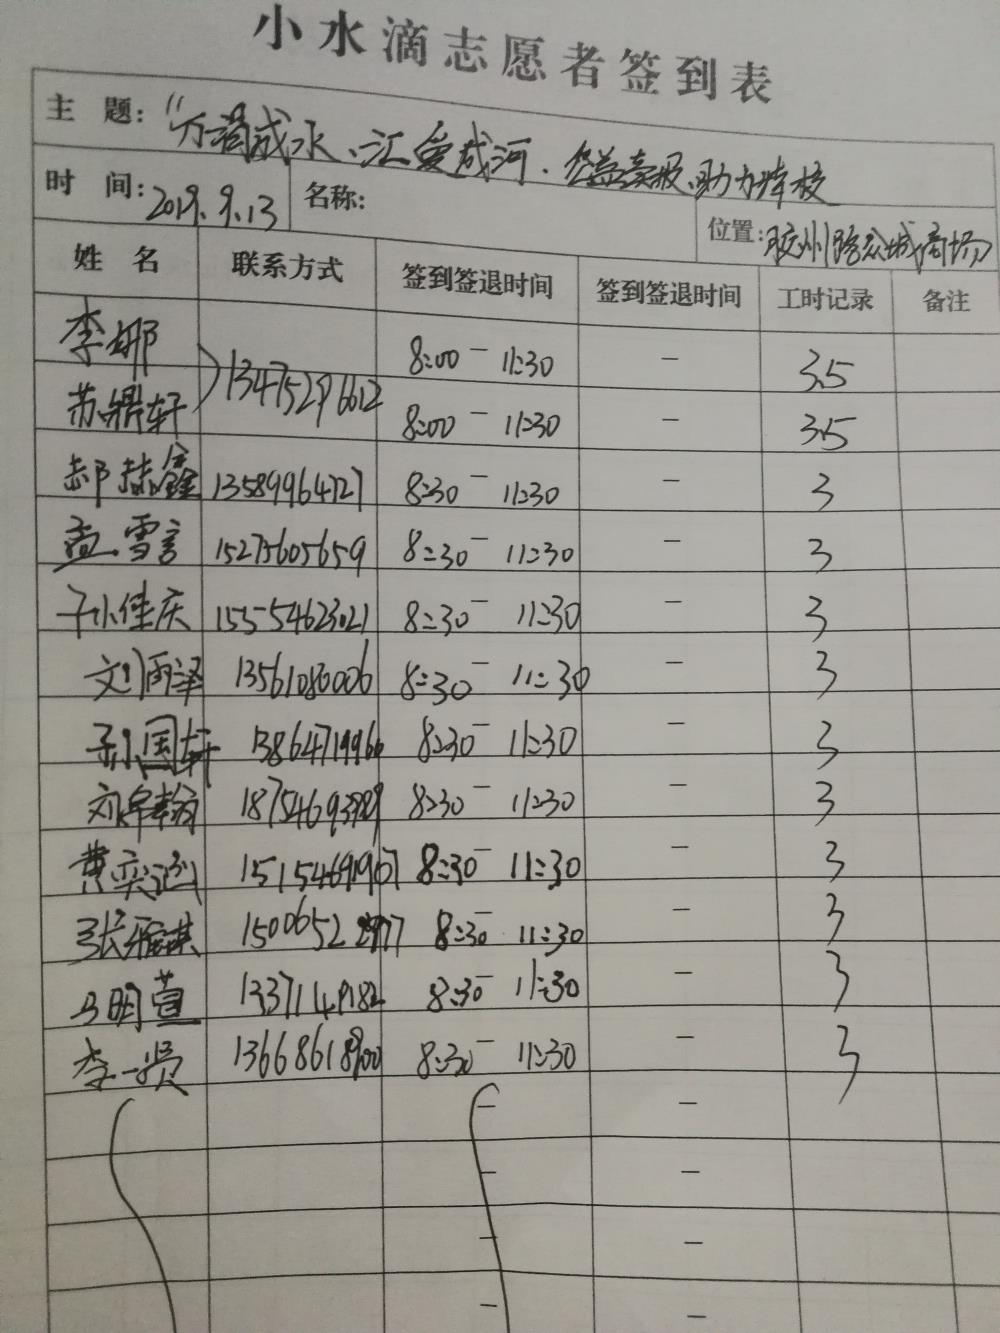 小水滴志愿者签到表
主 题: “万滴成水、汇爱成河.公益卖报、助力择校
时 间: 2019.9.13 名称: 位置: 胶州路众城商场
姓 名 联系方式 签到签退时间 签到签退时间 工时记录 备注
李娜 13475296612 8:00 - 11:30 - 3.5
苏鼎轩 8:00 - 11:30 - 3.5
郝赫鑫 13589964727 8:30 - 11:30 - 3
孟雪言 15275605659 8:30 - 11:30 - 3
孙佳庆 15554623021 8:30 - 11:30 - 3
刘雨泽 13561080006 8:30 - 11:30 - 3
孙国轩 13864719960 8:30 - 11:30 - 3
刘 8:30 - 11:30 - 3
费奕涵 8:30 - 11:30 - 3
张雅淇 8:30 - 11:30 - 3
马明萱 8:30 - 11:30 - 3
李一贤 13668618900 8:30 - 11:30 - 3
- -
- -
- -
- -